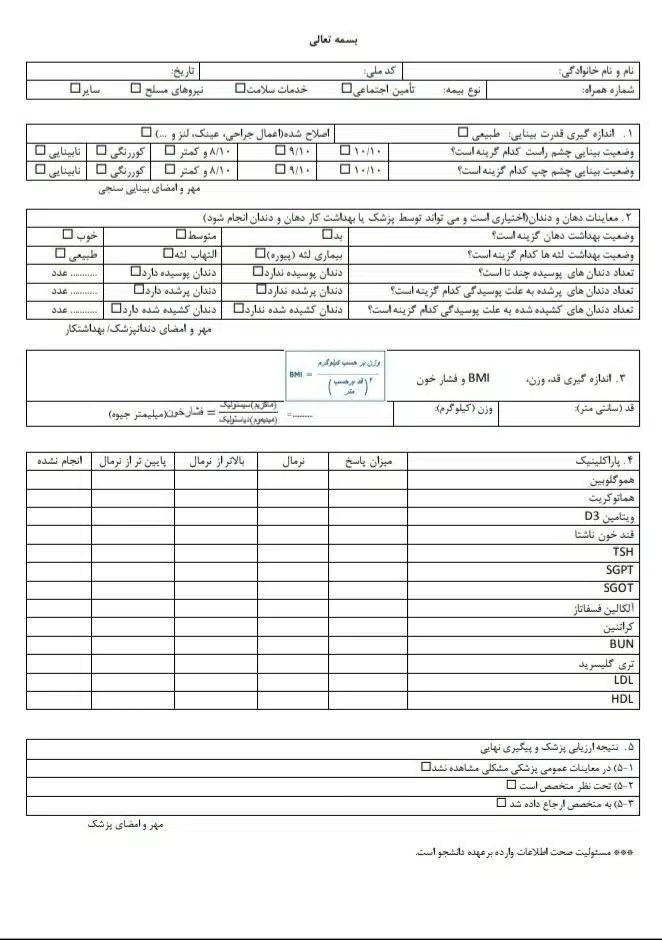 بسمه تعالی
نام و نام خانوادگی: کد ملی: تاریخ:
شماره همراه: نوع بیمه: تأمین اجتماعی☐ خدمات سلامت☐ نیروهای مسلح ☐ سایر☐
۱. اندازه گیری قدرت بینایی: طبیعی ☐ اصلاح شده(اعمال جراحی، عینک، لنز و ...) ☐
وضعیت بینایی چشم راست کدام گزینه است؟ ۱۰/۱۰ ☐ ۹/۱۰ ☐ ۸/۱۰ و کمتر ☐ کوررنگی ☐ نابینایی ☐
وضعیت بینایی چشم چپ کدام گزینه است؟ ۱۰/۱۰ ☐ ۹/۱۰ ☐ ۸/۱۰ و کمتر ☐ کوررنگی ☐ نابینایی ☐
مهر و امضای بینایی سنجی
۲. معاینات دهان و دندان(اختیاری است و می تواند توسط پزشک یا بهداشت کار دهان و دندان انجام شود)
وضعیت بهداشت دهان گزینه است؟ بد☐ متوسط☐ خوب ☐
وضعیت بهداشت لثه ها کدام گزینه است؟ بیماری لثه (پیوره)☐ التهاب لثه☐ طبیعی ☐
تعداد دندان های پوسیده چند تا است؟ دندان پوسیده ندارد☐ دندان پوسیده دارد☐ .......... عدد
تعداد دندان های پرشده به علت پوسیدگی کدام گزینه است؟ دندان پرشده ندارد☐ دندان پرشده دارد☐ .......... عدد
تعداد دندان های کشیده شده به علت پوسیدگی کدام گزینه است؟ دندان کشیده شده ندارد☐ دندان کشیده شده دارد☐ .......... عدد
مهر و امضای دندانپزشک/ بهداشتکار
۳. اندازه گیری قد، وزن، BMI و فشار خون
BMI = وزن بر حسب کیلوگرم
(قد برحسب متر)۲
قد (سانتی متر): وزن (کیلوگرم): ..........= (ماکزیمم)سیستولیک
(مینیموم)دیاستولیک = فشارخون(میلیمتر جیوه)
۴. پاراکلینیک میزان پاسخ نرمال بالاتر از نرمال پایین تر از نرمال انجام نشده
هموگلوبین
هماتوکریت
ویتامین D3
قند خون ناشتا
TSH
SGPT
SGOT
آلکالین فسفاتاز
کراتنین
BUN
تری گلیسرید
LDL
HDL
۵. نتیجه ارزیابی پزشک و پیگیری نهایی
۵-۱) در معاینات عمومی پزشکی مشکلی مشاهده نشد☐
۵-۲) تحت نظر متخصص است ☐
۵-۳) به متخصص ارجاع داده شد ☐
مهر و امضای پزشک
*** مسئولیت صحت اطلاعات وارده برعهده دانشجو است.